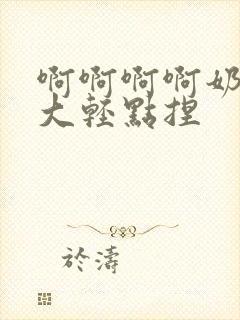 啊啊啊啊奶
大輕點捏
於濤